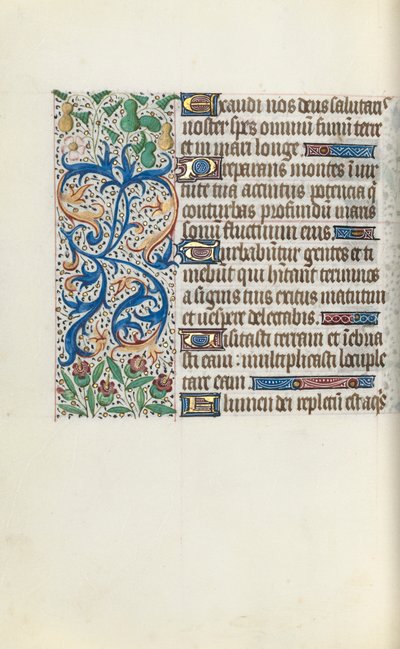 Exaudi nos deus salutaris
noster spes omniū finiū terre
et in mari longe
Preparans montes in vir
tute tua accinctus potencia q̄
conturbas profundū maris
sonū fluctuum eius
Turbabūtur gentes et ti
mebūt qui hītant terminos
a signis tuis exitus matutini
et vespere delectabis.
Uisitasti terram et īebria
sti eam: multiplicasti locuple
tare eam
Flumen dei repletū est aq̄s